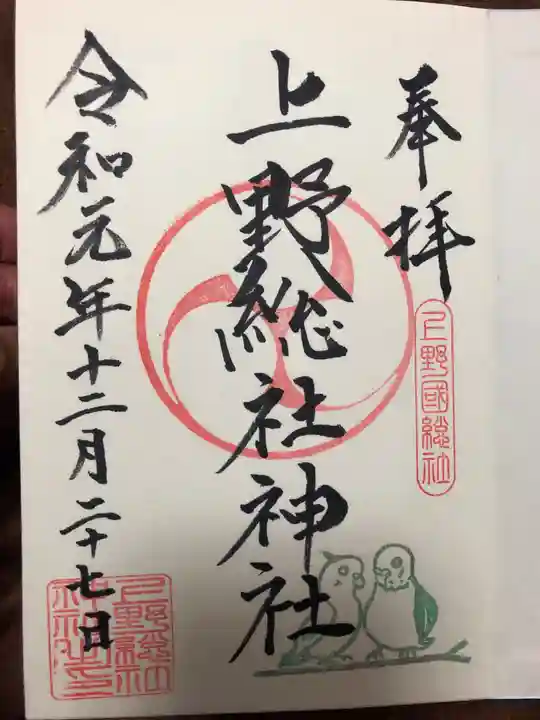 奉拝
上野國総社
上野総社神社
令和元年十二月二十七日
上野総社
神社之印